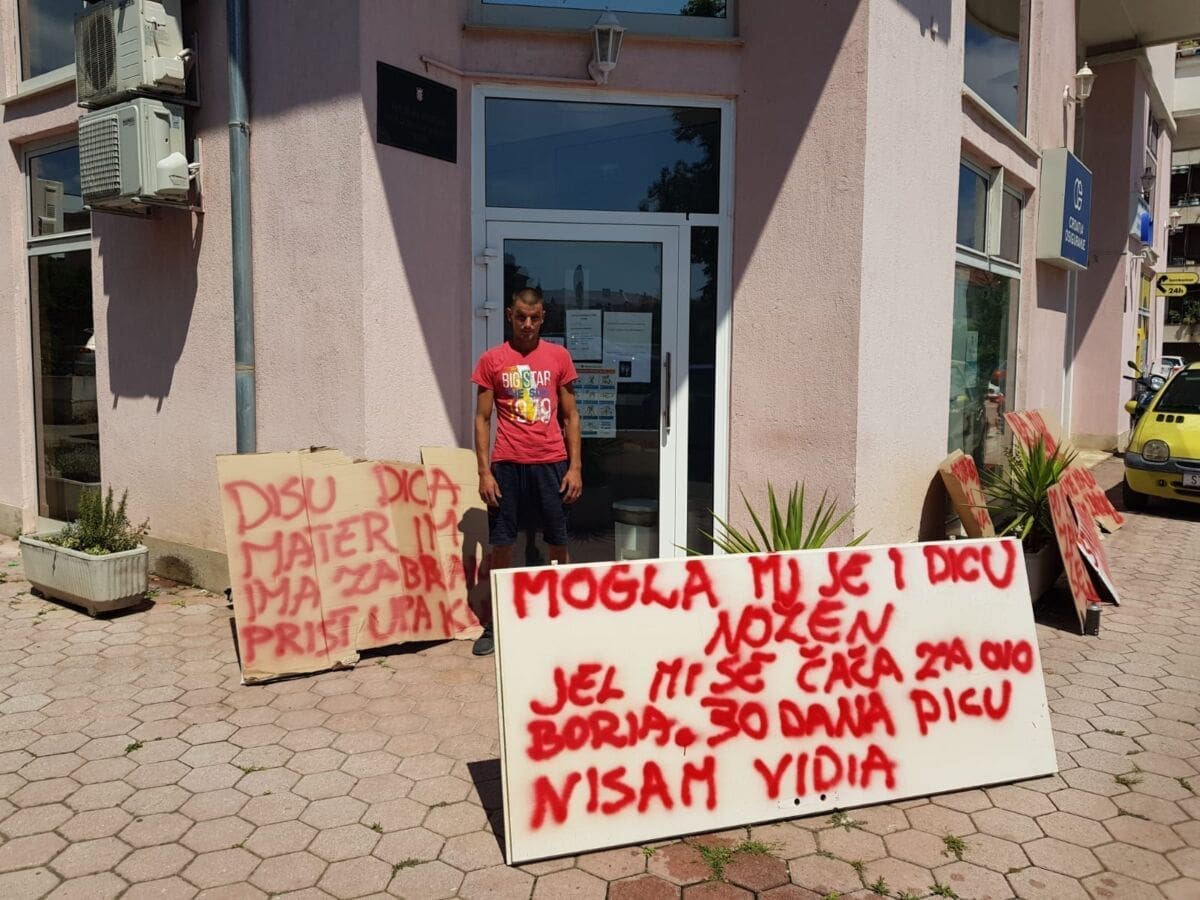 CROATIA
OSIGURANJE
24h
BIG STAR
1979
DISU DICA
MATER IM
IMA ZABRA
PRISTUPA K
MOGLA MI JE I DICU
NOŽEN
JEL MI SE ČAČA ZA OVO
BORIA. 30 DANA DICU
NISAM VIDIA